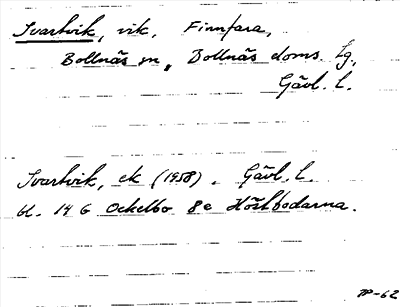 Svartvik, vik, Finnfara,
Bollnäs sn, Bollnäs doms. tg.,
Gävl. l.
Svartvik, ek (1958). Gävl. l.
bl. 14 G Ockelbo 8e Höstbodarna.
-62